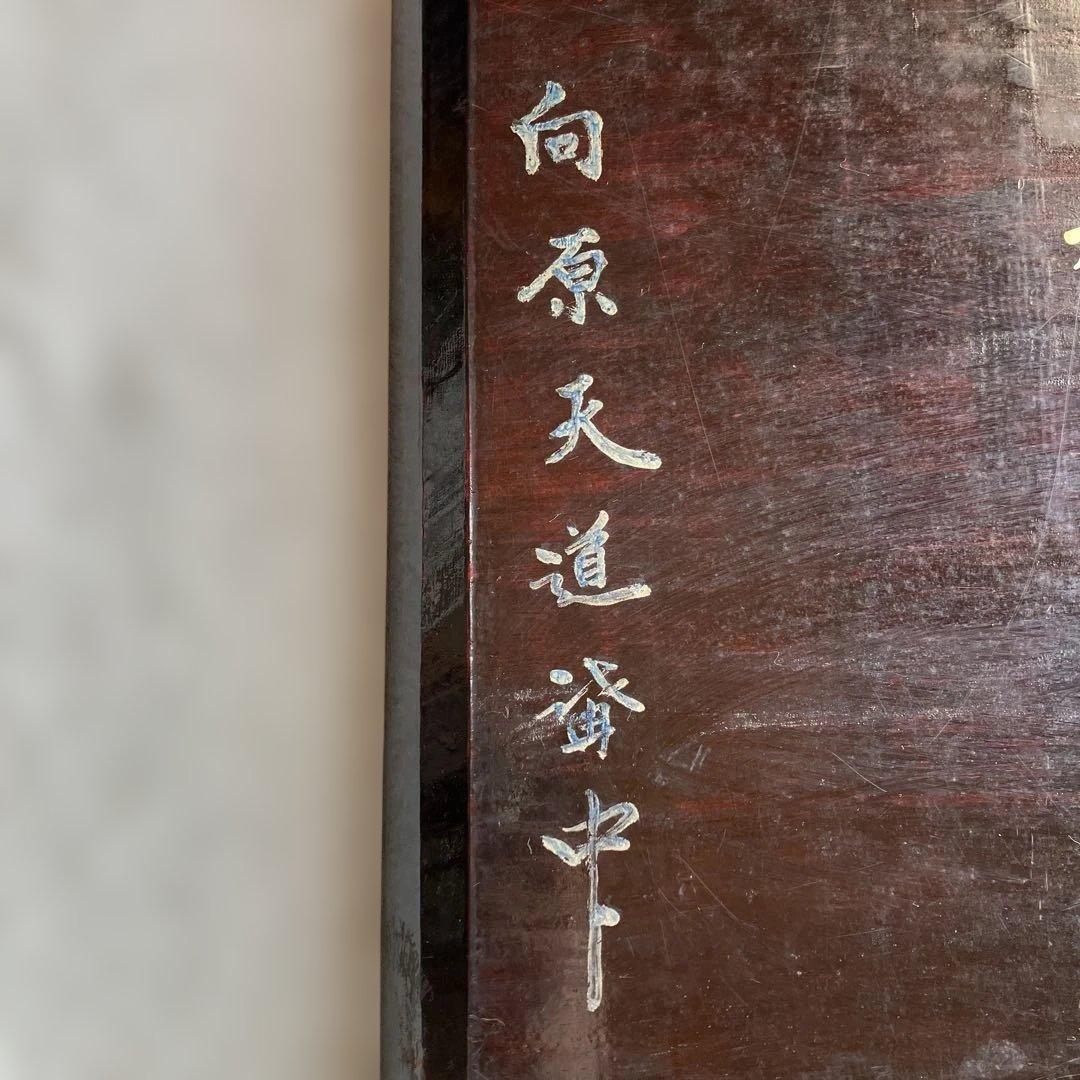 向原天道講中